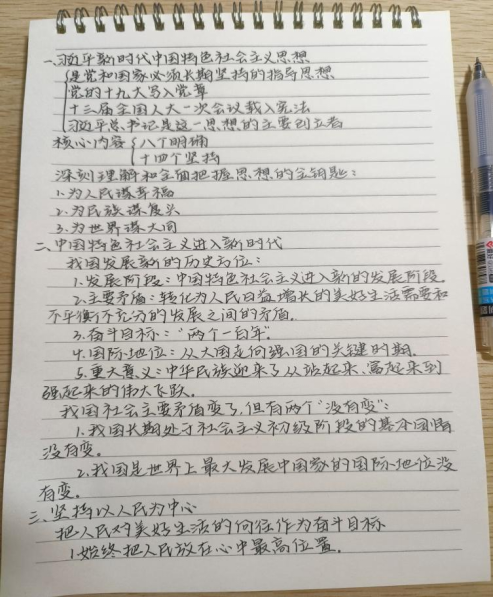 一、习近平新时代中国特色社会主义思想
是党和国家必须长期坚持的指导思想
党的十九大写入党章
十三届全国人大一次会议载入宪法
习近平总书记是这一思想的主要创立者
核心内容 八个明确
十四个坚持
深刻理解和全面把握思想的金钥匙：
1.为人民谋幸福
2.为民族谋复兴
3.为世界谋大同
二、中国特色社会主义进入新时代
我国发展新的历史方位：
1.发展阶段：中国特色社会主义进入新的发展阶段.
2.主要矛盾：转化为人民日益增长的美好生活需要和
不平衡不充分的发展之间的矛盾.
3.奋斗目标："两个一百年".
4.国际地位：从大国走向强国的关键时期.
5.重大意义：中华民族迎来了从站起来、富起来到
强起来的伟大飞跃.
我国社会主要矛盾变了,但有两个"没有变"：
1.我国长期处于社会主义初级阶段的基本国情
没有变.
2.我国是世界上最大发展中国家的国际地位没
有变.
三、坚持以人民为中心
把人民对美好生活的向往作为奋斗目标
1.始终把人民放在心中最高位置.